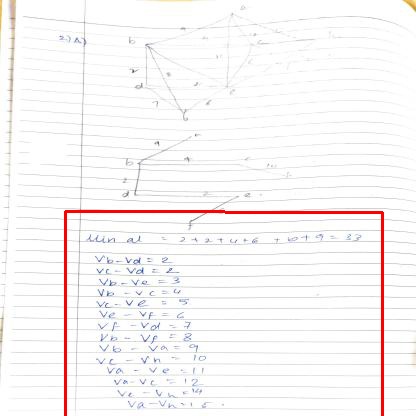 2) A)
a
b
9
2
d
8
7
6
f
e
9
b
2
d
2
e
f
Min al = 2+2+4+6 +10+9 = 33
Vb - Vd = 2
Vc - Vd = 2
Vb - Ve = 3
Vb - Vc = 4
Vc - Ve = 5
Ve - Vf = 6
Vf - Vd = 7
Vb - Vf = 8
Vb - Va = 9
Vc - Vh = 10
Va - Ve = 11
Va - Vc = 12
Ve - Vh = 14
Va - Vh = 15.